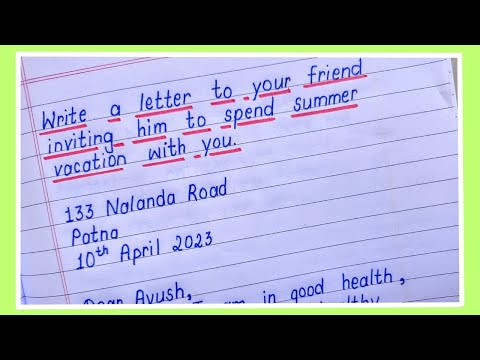 Write a letter to your friend
inviting him to spend summer
vacation with you.
133 Nalanda Road
Patna
10th April 2023
Dear Ayush,
I am in good health,
healthy